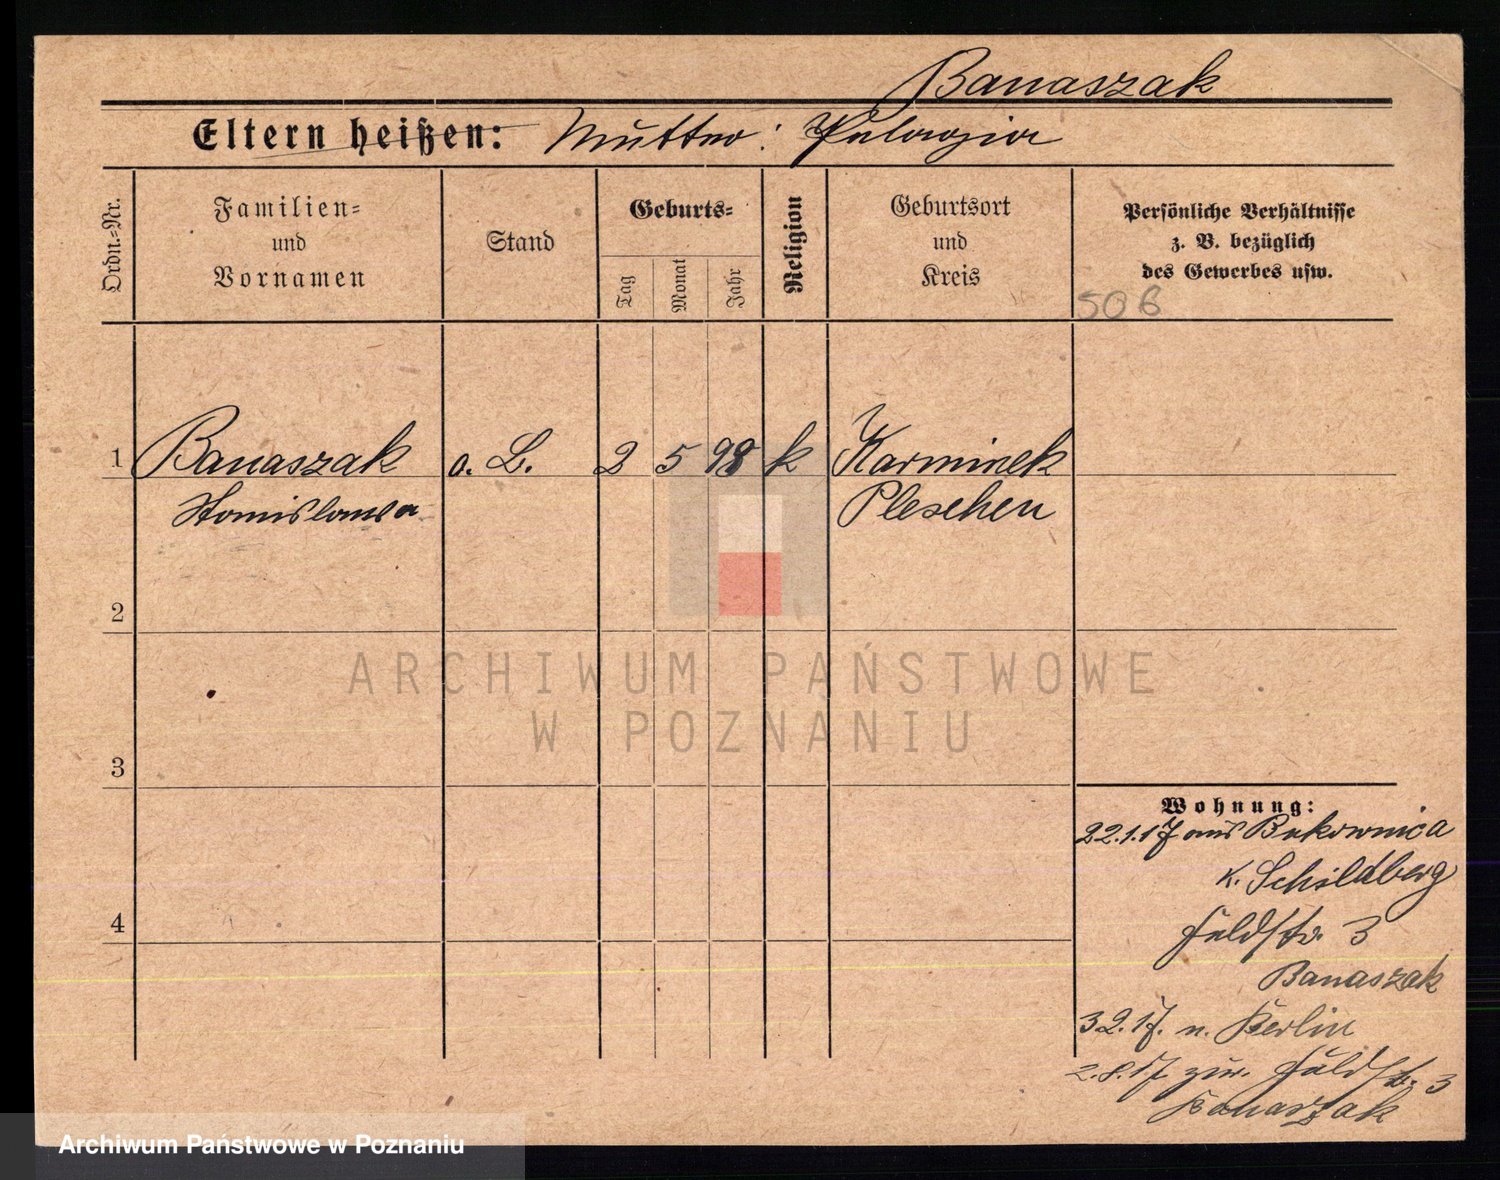 Banaszak
Eltern heißen: Mutter: Pelagia
Ordn.-Nr.
Familien-
und
Vornamen
Stand
Geburts-
Tag
Monat
Jahr
Religion
Geburtsort
und
Kreis
Persönliche Verhältnisse
z. B. bezüglich
des Gewerbes usw.
50 6
1 Banaszak o. B. 2 5 98 k Karminek
Stanislawa Pleschen
2
3
4
Wohnung:
22.1.17 aus Bukownica
K. Schildberg
Feldstr. 3
Banaszak
3 2. 17. n. Berlin
2.8.17 zur. Feldstr. 3
Banaszak
ARCHIWUM PAŃSTWOWE
W POZNANIU
Archiwum Państwowe w Poznaniu